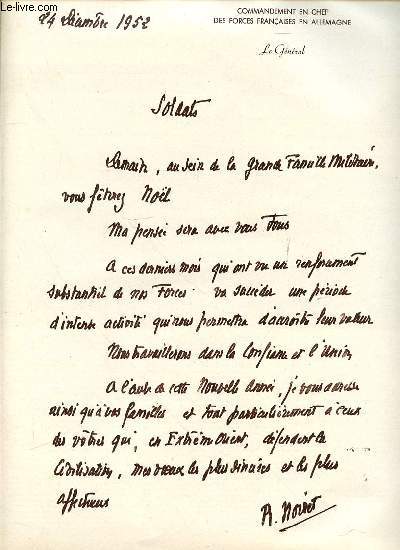 Le-livre.com
24 Décembre 1952
COMMANDEMENT EN CHEF
DES FORCES FRANÇAISES EN ALLEMAGNE
Le Général
Soldats
Demain, au sein de la grande Famille Militaire,
vous fêterez Noël
Ma pensée sera avec vous tous
A ces derniers mois qui ont vu un renforcement
substantiel de nos Forces va succéder une période
d'intense activité qui nous permettra d'accroître leur valeur
Nous travaillerons dans la Confiance et l'Union
A l'aube de cette Nouvelle Année, je vous adresse
ainsi qu'à vos familles et tout particulièrement à ceux
des vôtres qui, en Extrême Orient, défendent la
Civilisation, mes vœux les plus sincères et les plus
affectueux
R. Noiret